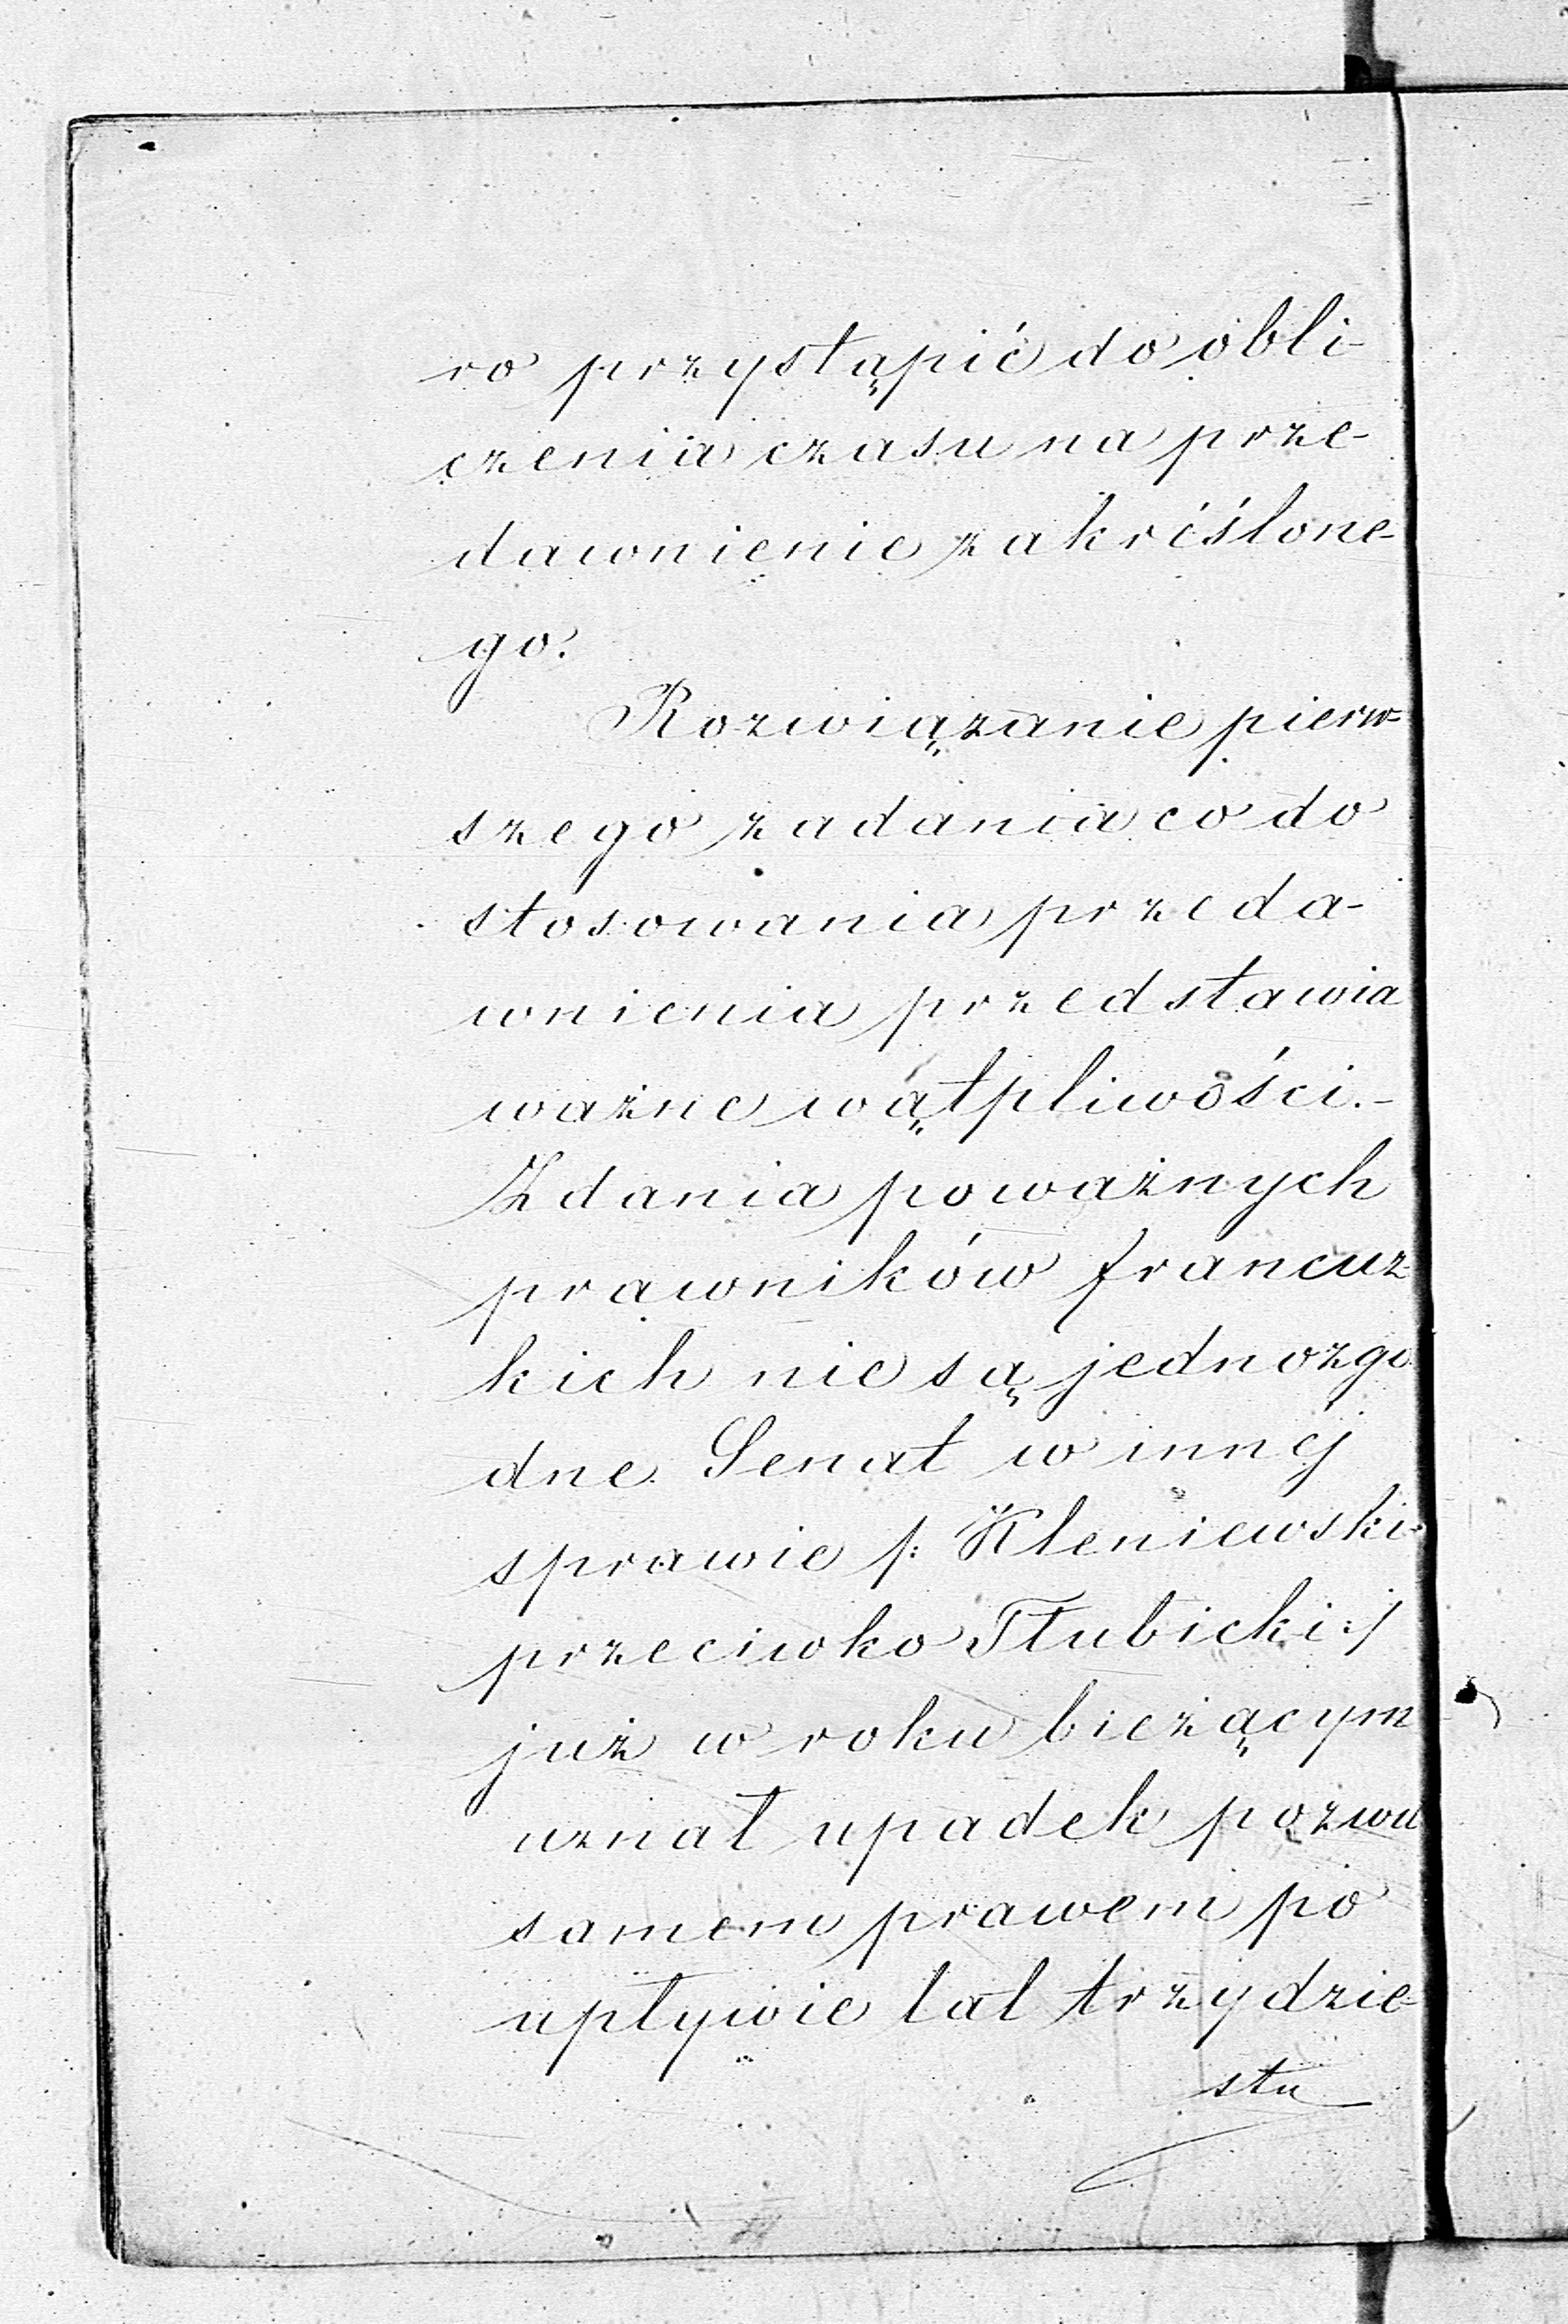 ro przystąpić do obli-
czenia czasu na prze-
dawnienie zakréślone-
go.
Rozwiązanie pierw-
szego zadania co do
stosowania przeda-
wnienia przedstawia
ważne wątpliwości.-
Zdania poważnych
prawników francuz-
kich nie są jednozgo-
dne. Senat w innéj
sprawie /: Kleniewski
przeciwko Tłubicki :/
już w roku bieżącym
uznał upadek pozwu
samem prawem po
upływie lat trzydzie-
stu